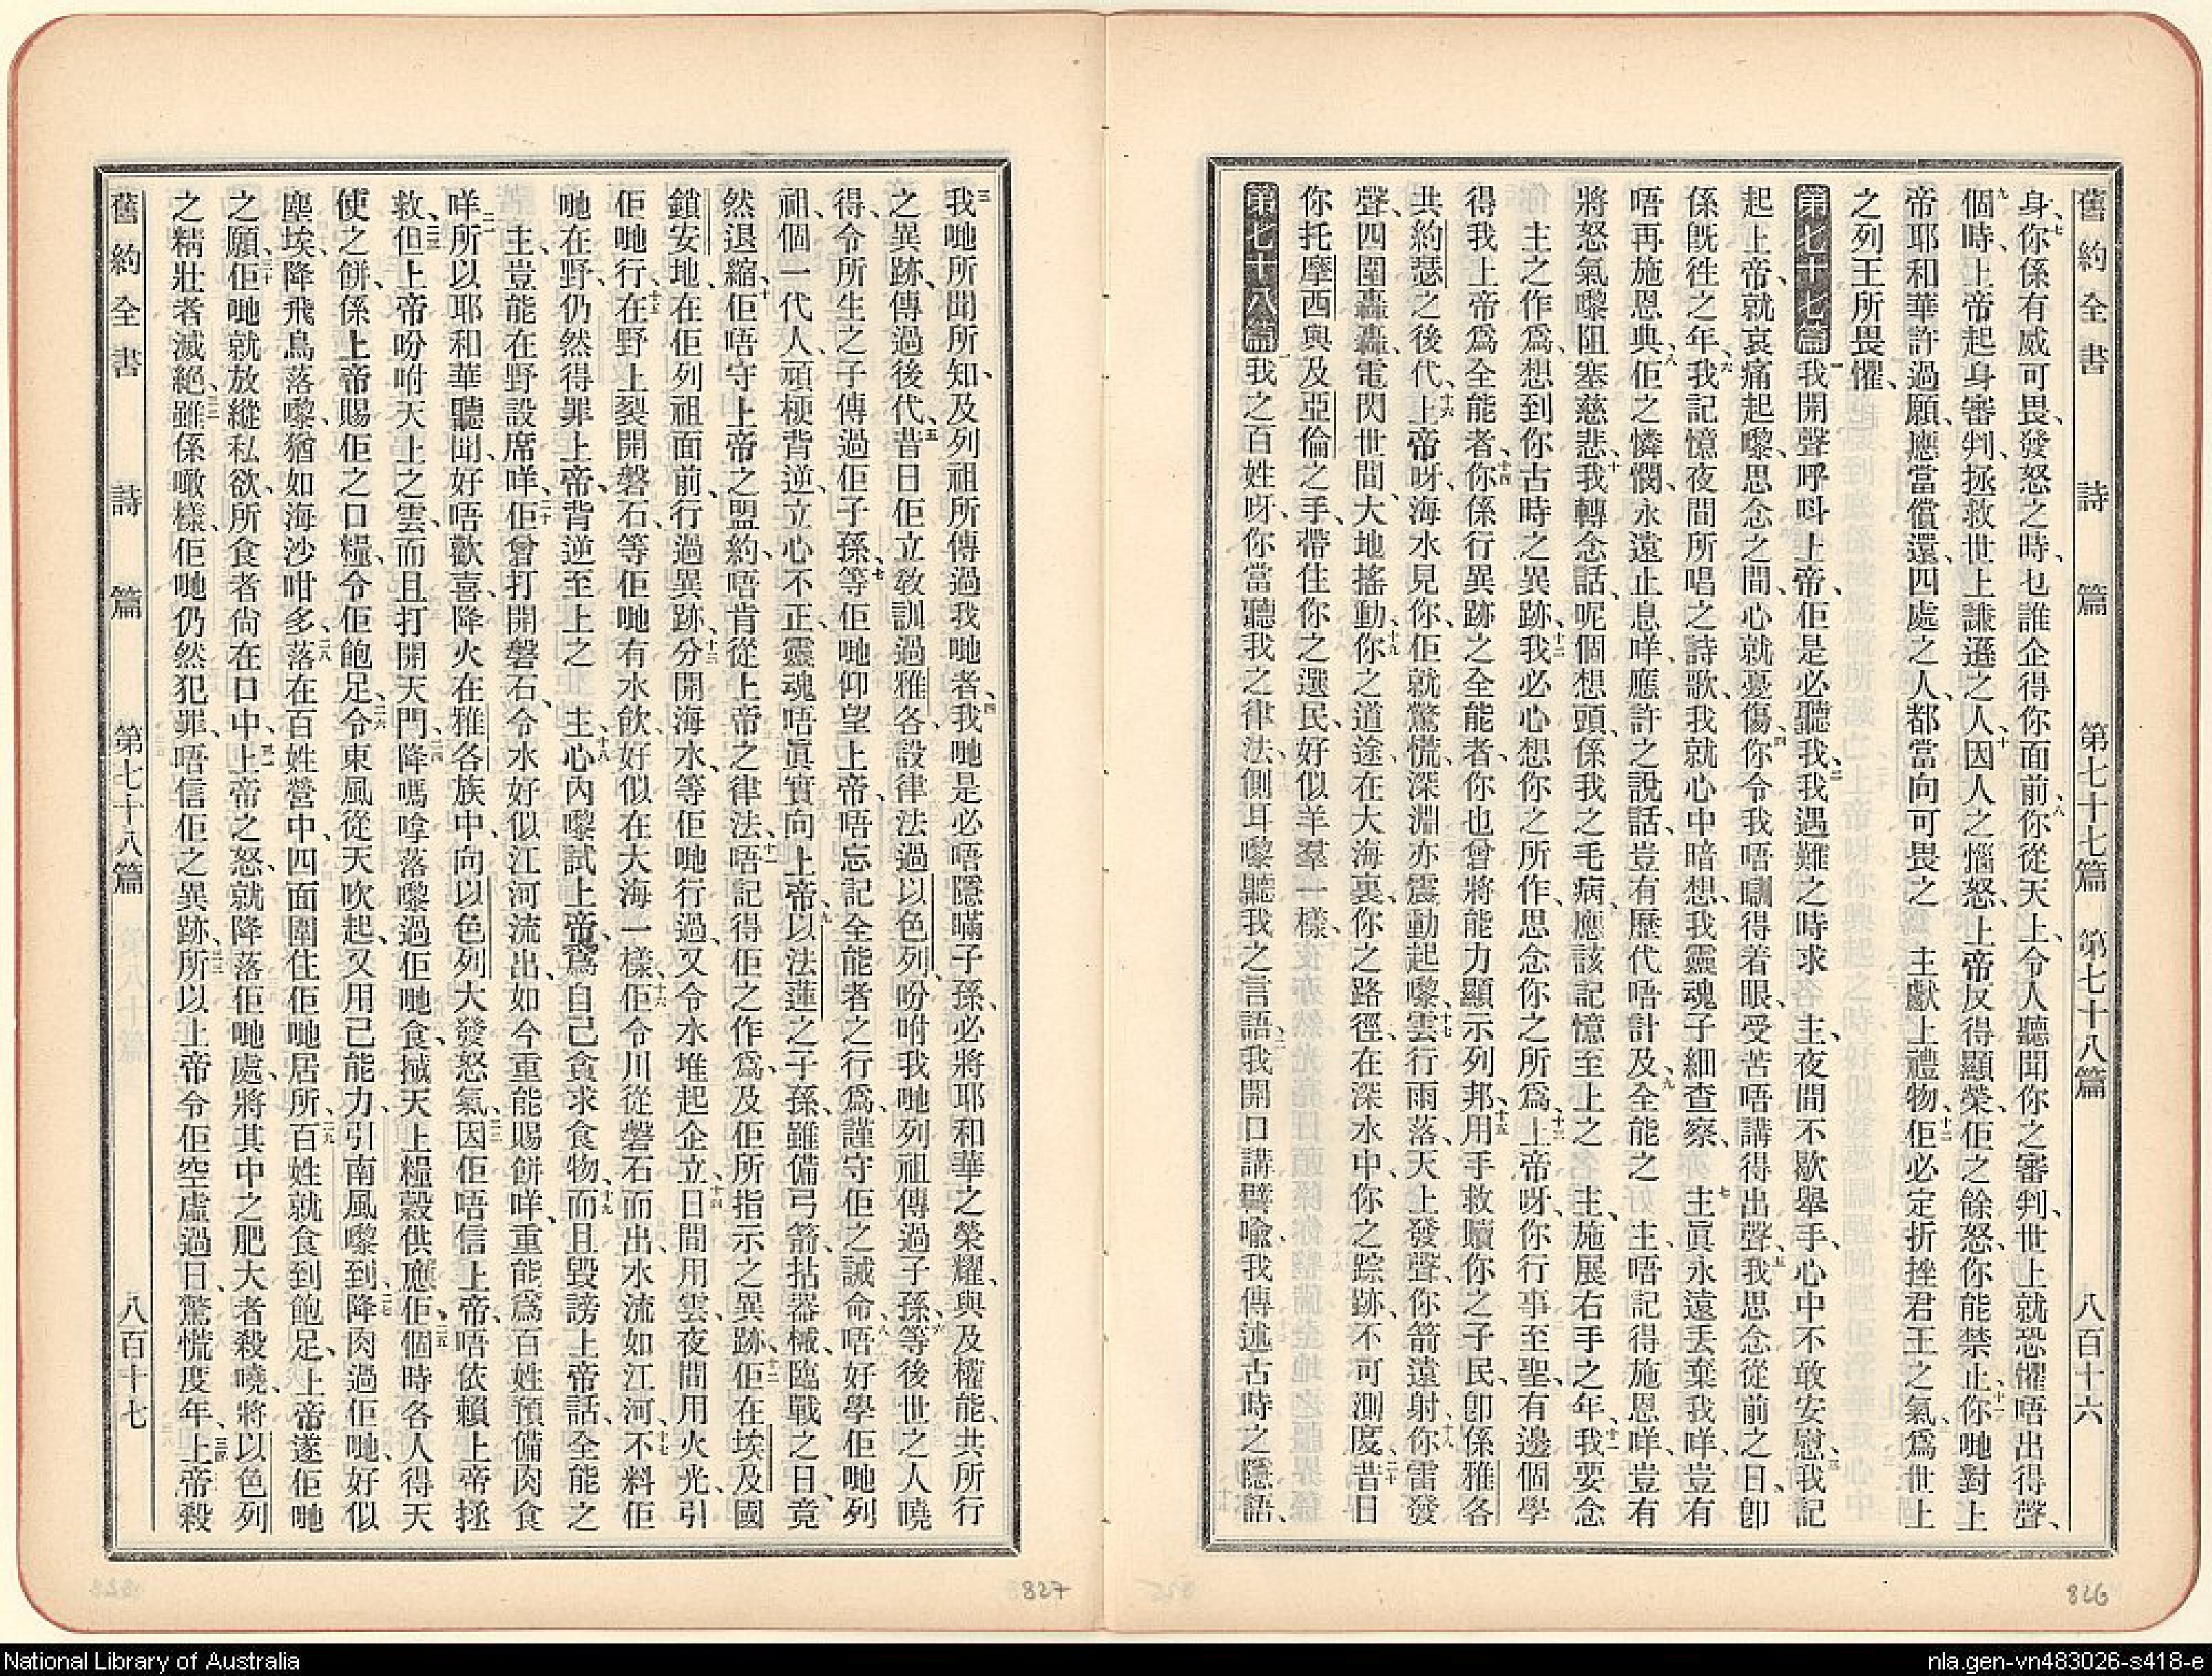 舊約全書 詩篇 第七十七篇 第七十八篇 八百十六
身、七你係有威可畏、發怒之時、乜誰企得你面前、八你從天上、令人聽聞你之審判、世上就恐懼唔出得聲、
九個時、上帝起身審判、拯救世上謙遜之人、十因人之惱怒、上帝反得顯榮、佢之餘怒、你能禁止、十一你哋對上
帝耶和華許過願、應當償還、四處之人、都當向可畏之 主獻上禮物、十二佢必定折挫君王之氣、爲世上
之列王所畏懼、
第七十七篇 一我開聲呼呌上帝、佢是必聽我、二我遇難之時求 主、夜間不歇舉手、心中不敢安慰、三我記
起上帝、就哀痛起嚟、思念之間、心就憂傷、四你令我唔瞓得着眼、受苦唔講得出聲、五我思念從前之日、卽
係旣徃之年、六我記憶夜間所唱之詩歌、我就心中暗想、我靈魂子細查察、 七主眞永遠丟棄我咩、豈有
唔再施恩典、八佢之憐憫、永遠止息咩、應許之說話、豈有歷代唔計及、九全能之 主、唔記得施恩咩、豈有
將怒氣嚟阻塞慈悲、十我轉念話、呢個想頭、係我之毛病、應該記憶至上之 主、施展右手之年、十一我要念
主之作爲、想到你古時之異跡、十二我必心想你之所作、思念你之所爲、十三上帝呀、你行事至聖、有邊個學
得我上帝爲全能者、十四你係行異跡之全能者、你也曾將能力顯示列邦、十五用手救贖你之子民、卽係雅各
共約瑟之後代、十六上帝呀、海水見你、佢就驚慌、深淵亦震動起嚟、十七雲行雨落、天上發聲、你箭遠射、十八你雷發
聲、四圍轟轟、電閃世間、大地搖動、十九你之道途、在大海裏、你之路徑、在深水中、你之踪跡、不可測度、二十昔日
你托摩西與及亞倫之手、帶住你之選民、好似羊羣一樣、
第七十八篇 一我之百姓呀、你當聽我之律法、側耳嚟聽我之言語、二我開口講譬喩、我傳述古時之隱語、
三我哋所聞所知、及列祖所傳過我哋者、四我哋是必唔隱瞞子孫、必將耶和華之榮耀、與及權能、共所行
之異跡、傳過後代、五昔日佢立敎訓過雅各、設律法過以色列、吩咐我哋列祖傳過子孫、六等後世之人曉
得、令所生之子傳過佢子孫、七等佢哋仰望上帝、唔忘記全能者之行爲、謹守佢之誡命、八唔好學佢哋列
祖、個一代人、頑梗背逆、立心不正、靈魂唔眞實向上帝、九以法蓮之子孫、雖備弓箭、拈器械、臨戰之日、竟
然退縮、十佢唔守上帝之盟約、唔肯從上帝之律法、十一唔記得佢之作爲、及佢所指示之異跡、十二佢在埃及國
鎖安地、在佢列祖面前、行過異跡、十三分開海水、等佢哋行過、又令水堆起企立、十四日間用雲、夜間用火光、引
佢哋行、十五在野上裂開磐石、等佢哋有水飮、好似在大海一樣、十六佢令川從磐石而出、水流如江河、十七不料佢
哋在野、仍然得罪上帝、背逆至上之 主、十八心內嚟試上帝、爲自己貪求食物、十九而且毀謗上帝話、全能之
主、豈能在野設席咩、二十佢曾打開磐石、令水好似江河流出、如今重能賜餅咩、重能爲百姓預備肉食
咩、二一所以耶和華聽聞、好唔歡喜、降火在雅各族中、向以色列大發怒氣、二二因佢唔信上帝、唔依賴上帝拯
救、二三但上帝吩咐天上之雲、而且打開天門、二四降嗎嗱落嚟過佢哋食、搣天上糧穀供應佢、二五個時各人得天
使之餅、係上帝賜佢之口糧、令佢飽足、二六令東風從天吹起、又用己能力、引南風嚟到、二七降肉過佢哋、好似
塵埃、降飛鳥落嚟、猶如海沙咁多、二八落在百姓營中、四面圍住佢哋居所、二九百姓就食到飽足、上帝遂佢哋
之願、三十佢哋就放縱私欲、所食者尙在口中、三一上帝之怒、就降落佢哋處、將其中之肥大者殺曉、將以色列
之精壯者滅絕、三二雖係噉樣、佢哋仍然犯罪、唔信佢之異跡、三三所以上帝令佢空虛過日、驚慌度年、三四上帝殺
舊約全書 詩篇 第七十八篇 八百十七
827
826
National Library of Australia
nla.gen-vn483026-s418-e